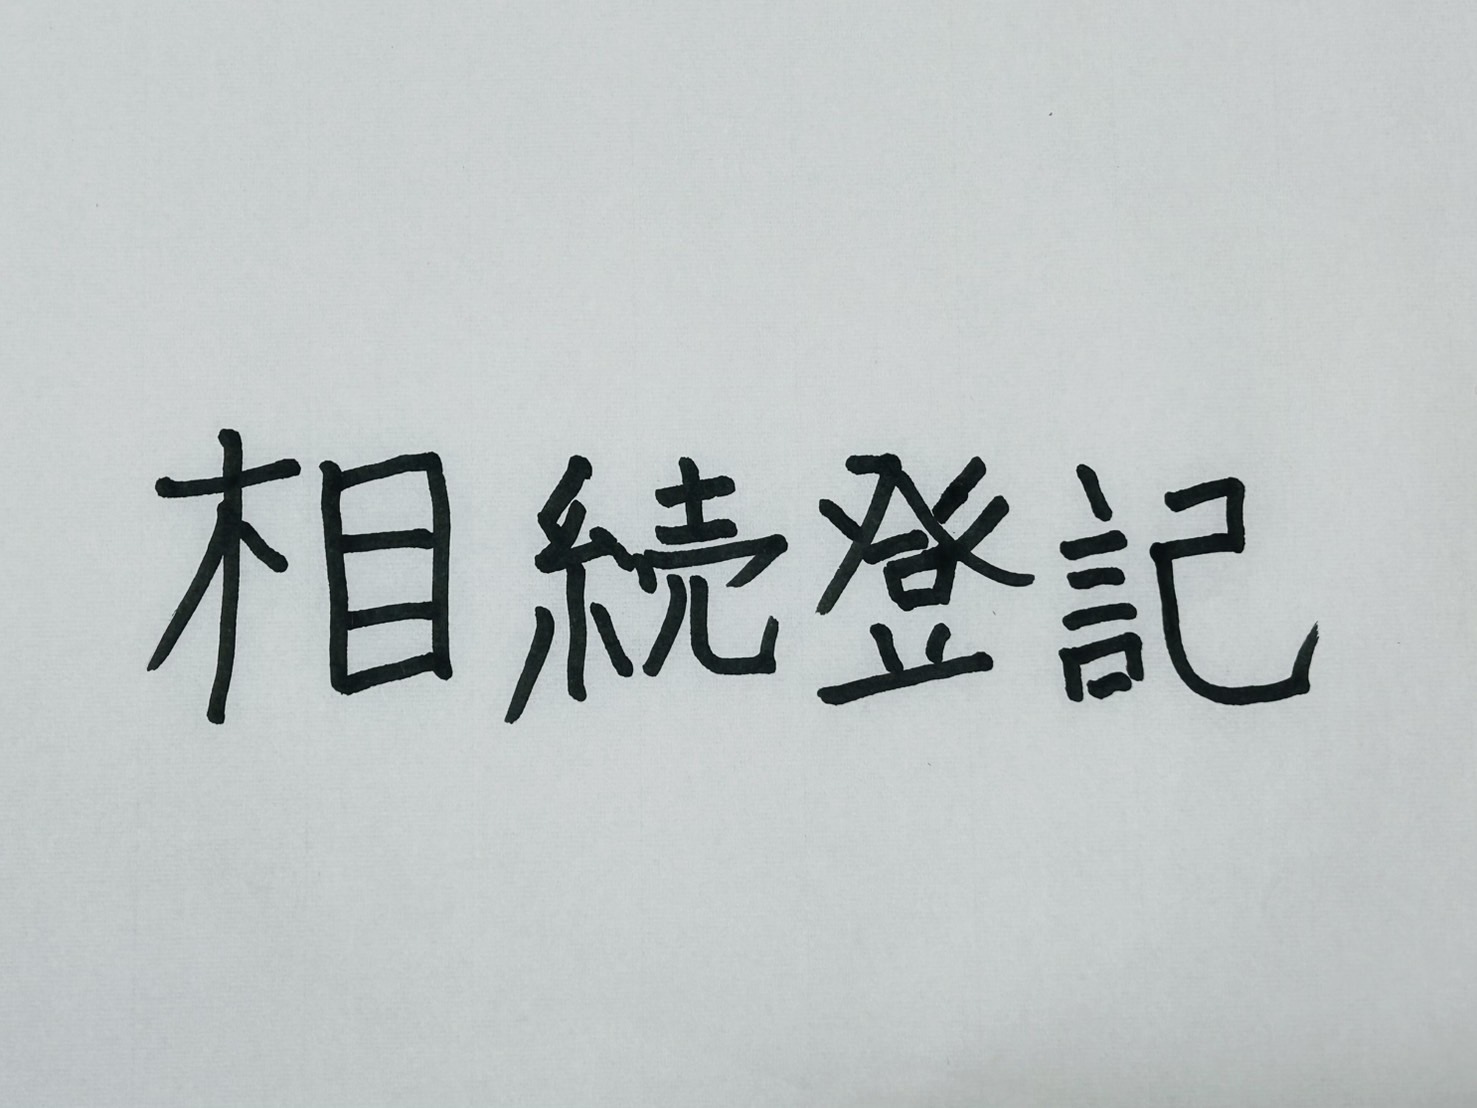 相続登記